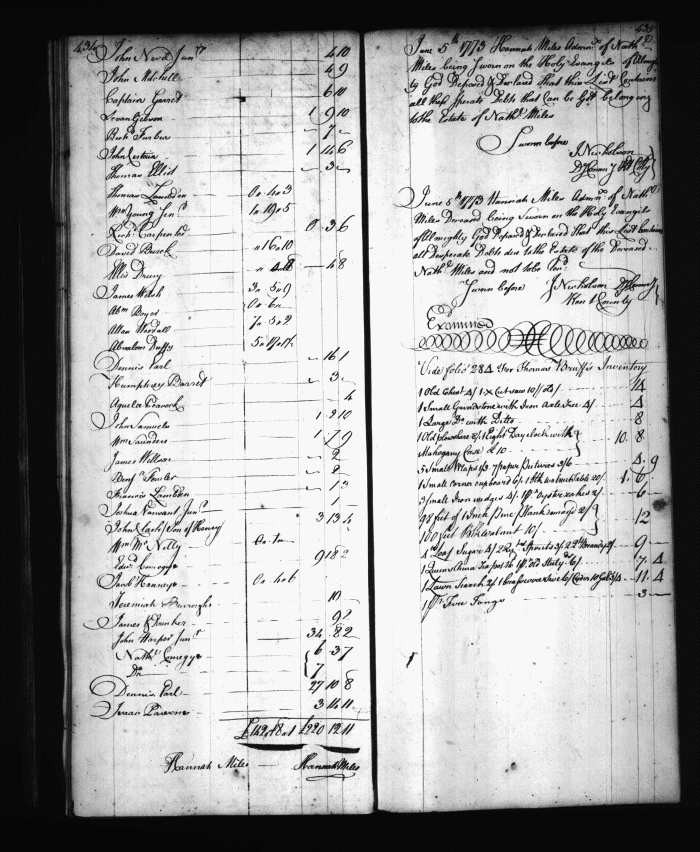 434
John Neved Junr 4 10
John Mitchell 4 9
Captain Garret 6 10
Levan Gibson 1 9 10
Furbur 1
John 1 14 6
Thomas Elliot 3
Thomas Lambden 0 4 3
Wm Young Senr 1 19 5
Carpenter 0 3 6
David Burch 16 10
Ellis Drury 4 8
James Welsh 3 5 9
Abm Boyer 0 6
Allan 7 5 2
Absalom Duffy 5
Dennis Earl 16 1
Humphry Barret 3
Aquila Peacock 4
John Samuels 1 2 10
Wm Saunders 1 7 9
James Willson 2
Benjn Fowler 2
Francis Lambden 1
Joshua Vansant Junr 1
John Clark Son of Henry 3 13 4
Wm Mc Nelly
Edwd Comegys 9 18 2
Jacob 0 4 6
Jeremiah Burroughs 10
James & Bunker 9 2
John Harper Junr 34 8 2
Nathl Comegys 6 3 7
Do 7
Dennis Earl 27 10 8
Isaac Parsons 3 14 11
£142 18 1 £220 12 11
Hannah Miles Hannah Miles
435
June 5th 1773 Hannah Miles Admx of Nathl
Miles being Sworn on the Holy Evangels of Almigh
ty God Deposed & Declared That this List Contains
all the Sperate Debts that Can be Got belonging
to the Estate of Nathl Miles
Sworn before
J Nicholson
DyComry Kt Cty
June 5th 1773 Hannah Miles Admx of Nathl
Miles Deceased being Sworn on the Holy Evangels
of Almighty God Deposed & Declared that this List Contains
all Desperate Debts due to the Estate of the Deceased
Nathl Miles and not to be
Sworn before J Nicholson DyComry
Kent County
Examined
Vide folio 284 For Thomas Bruff's Inventory
1 Old Chest 4/ 1 X Cut saw 10/ 14
1 Small Grindstone with Iron Axle Tree 4/ 4
1 Large Do with Ditto 8
1 Old plowshare 1 Eight Day clock with
Mahogany Case £10 10 8
5 Small Maps 1/3 7 paper Pictures 3/6 4 9
1 Small Corner cupboard 6/ 1 walnut table 20/ 1 6
3 Small Iron wedges 4/ 1 Pr Oyster rakes 2/ 6
98 feet of 1 Inch Pine Plank 2/
100 feet Blk Walnut 10/ 12
4 Loaf Sugar 4/ 3/ 9
1 Queens China Tea pot 1/6 6/ 7 4
1 Lawn Search 2/ 11 4
1 pr Fire Tongs 3